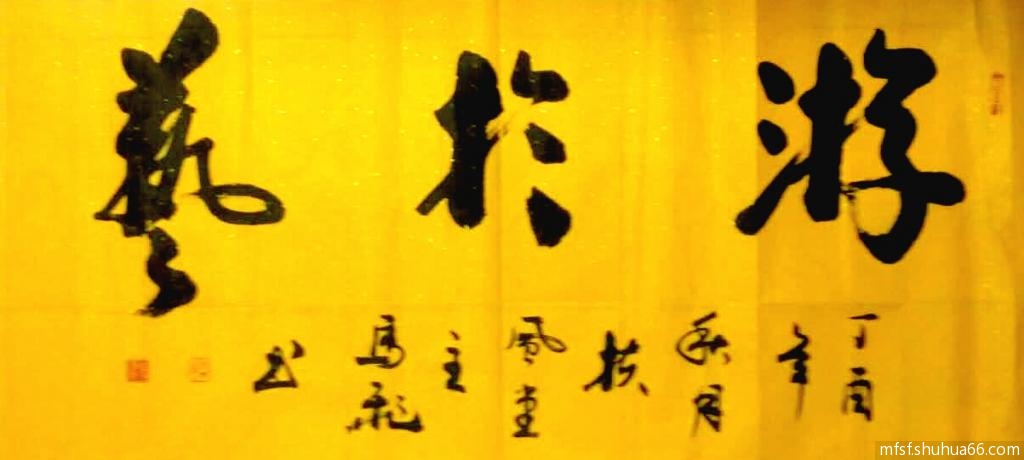 游於藝
丁酉年秋月扶風堂主馬飛书
mfsf.shuhua66.com